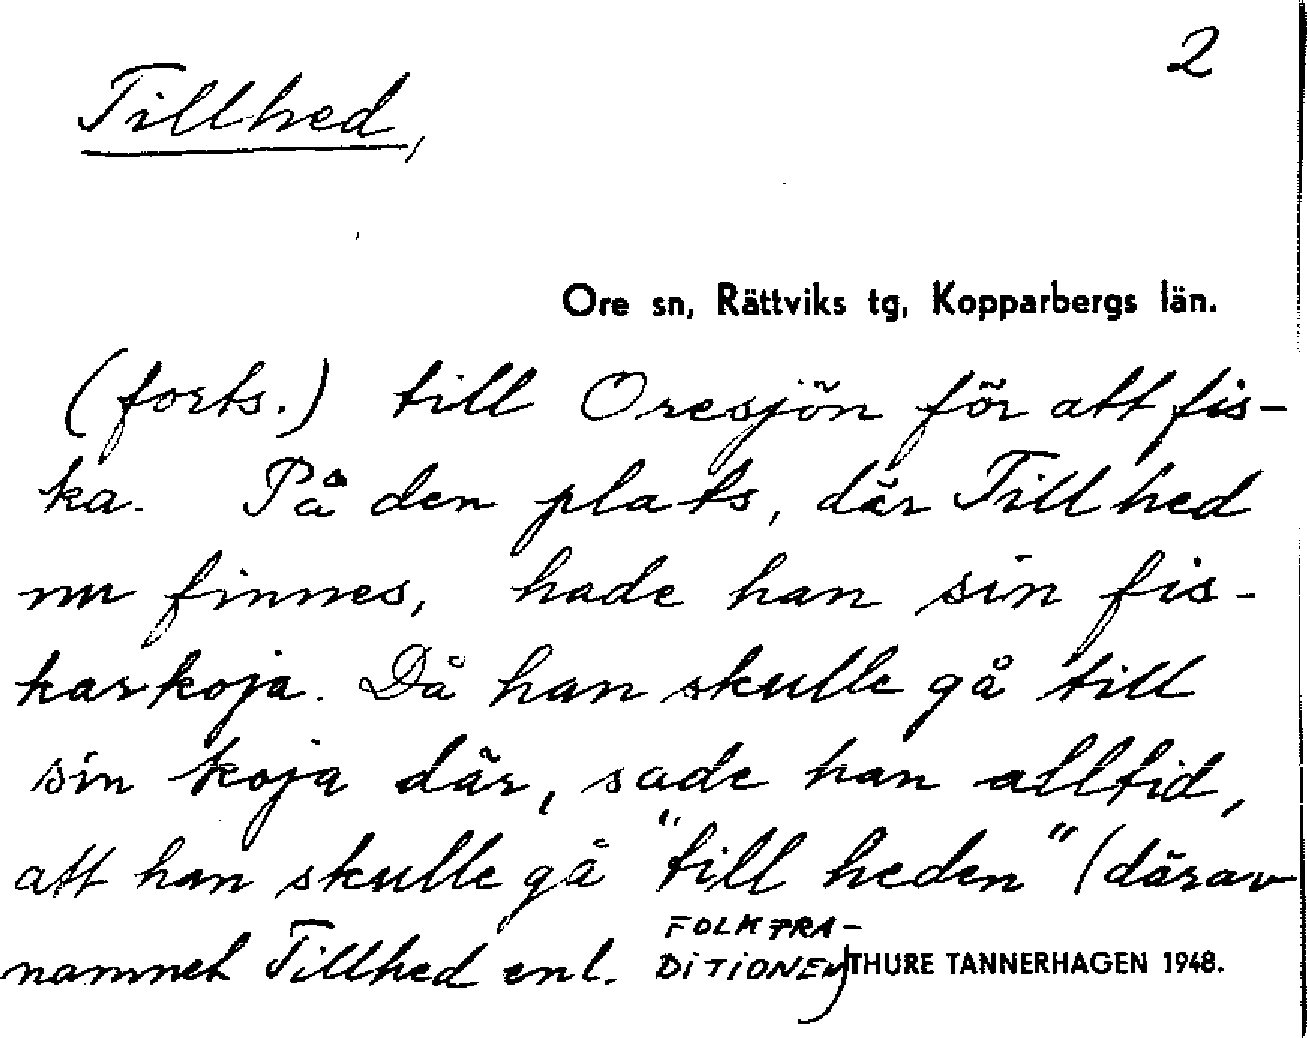 2
Tillhed,
Ore sn, Rättviks tg, Kopparbergs län.
(forts.) till Oresjön för att fis-
ka. På den plats, där Tillhed
nu finnes, hade han sin fis-
karkoja. Då han skulle gå till
sin koja där, sade han alltid,
att han skulle gå "till heden" (därav
namnet Tillhed enl. FOLKTRA-
DITIONEN) THURE TANNERHAGEN 1948.